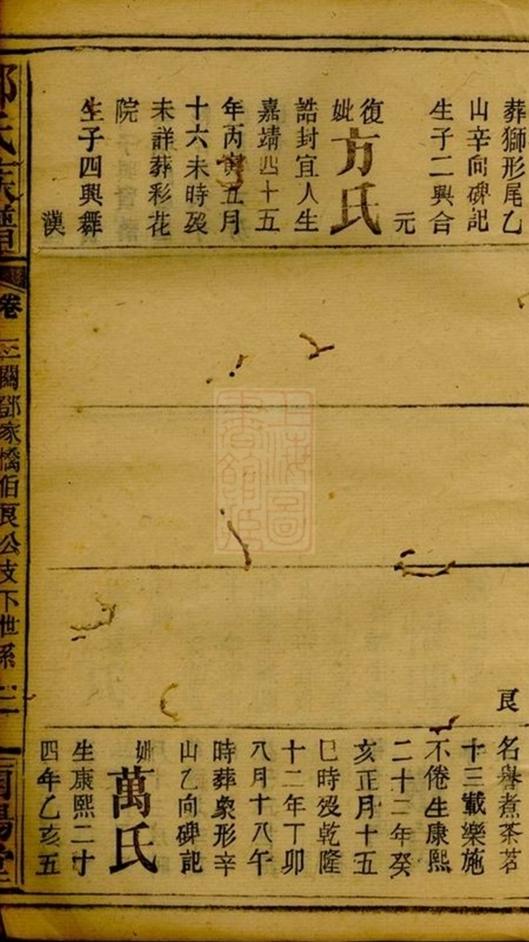 葬獅形尾乙
山辛向碑記
生子二興合
元
復
妣方氏
誥封宜人生
嘉靖四十五
年丙寅五月
十六未時殁
未詳葬彩花
院
生子四興舞
漢
艮
名譽煮茶茗
十三載樂施
不倦生康熙
二十二年癸
亥正月十五
巳時殁乾隆
十二年丁卯
八月十八午
時葬象形辛
山乙向碑記
妣萬氏
生康熙二十
四年乙亥五
鄧氏族譜
卷
關鄧家橋伯艮公支下世系
南陽堂
上海圖書館藏